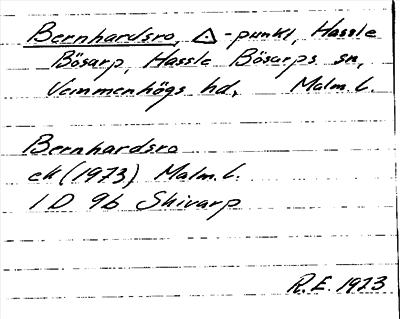 Bernhardsro, △-punkt, Hassle
Bösarp, Hassle Bösarps sn,
Vemmenhögs hd, Malm.l.
Bernhardsro
ek (1973) Malm.l.
1 D 9b Skivarp
R.E. 1973